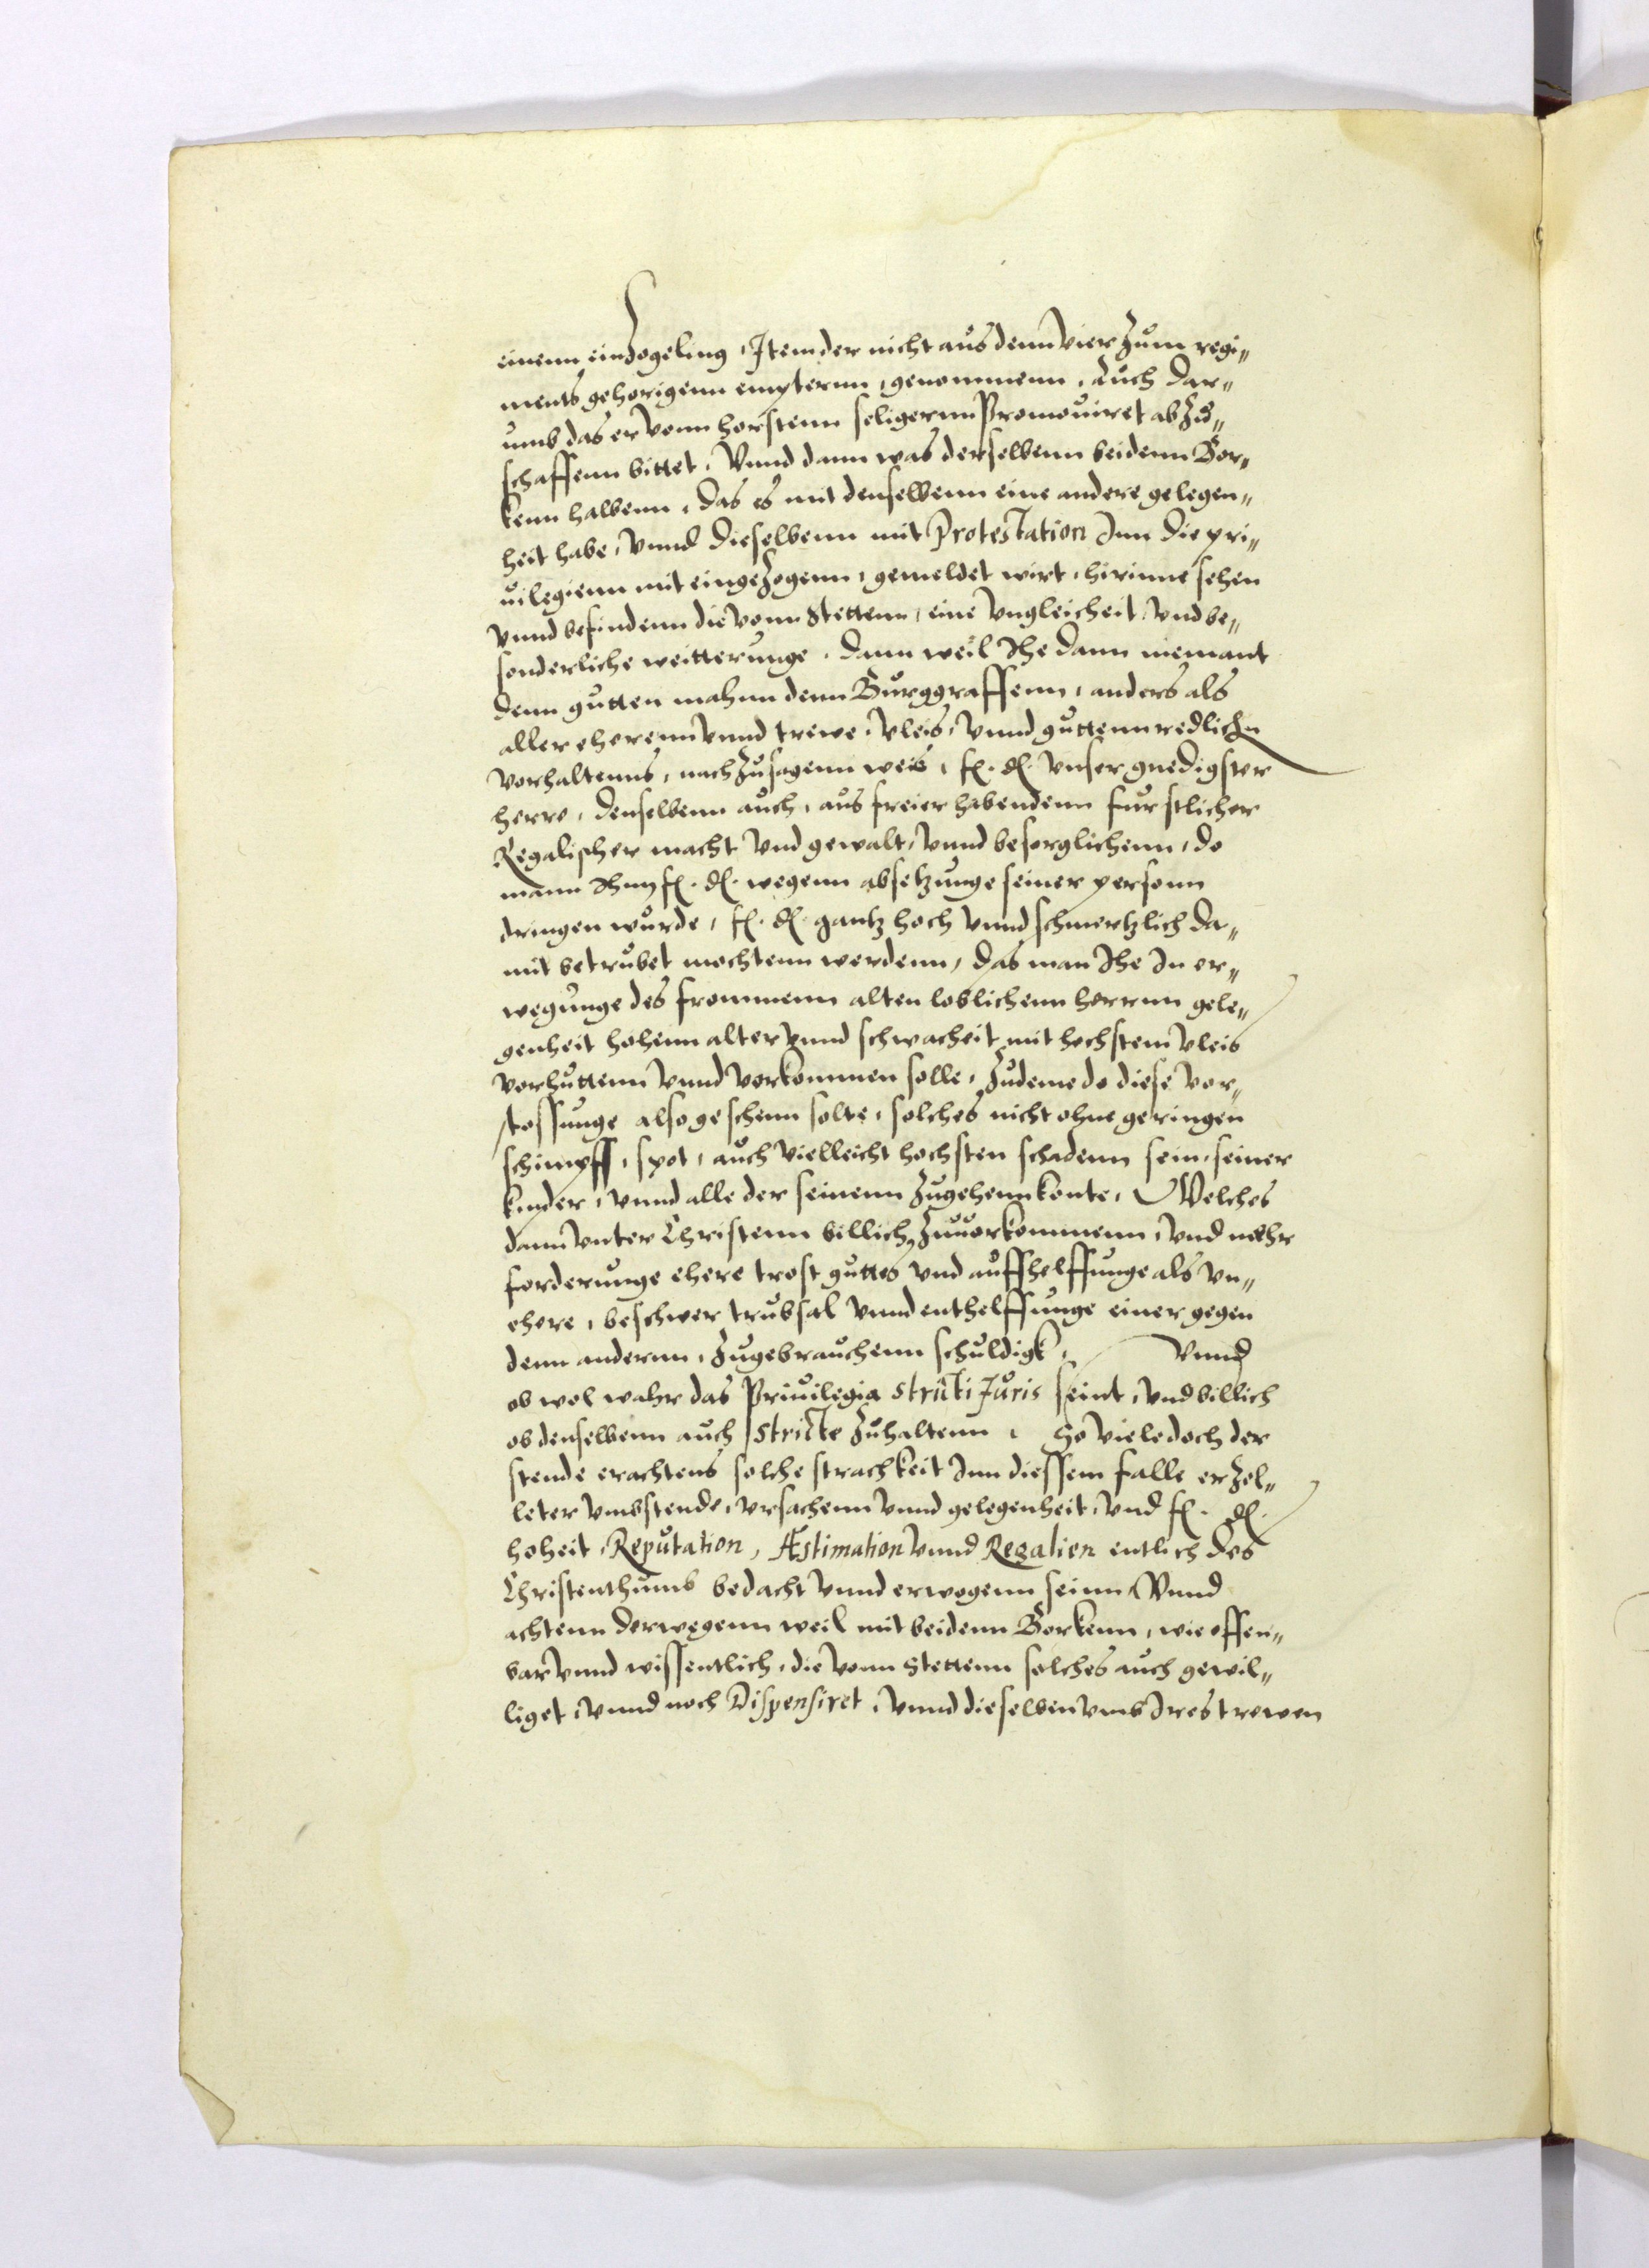 einenn einzogeling, Item der nicht aus denn vier zum regi„
ments gehorigenn empternn, genommenn, Auch dar„
umb das er vonn horstenn seligernn Promouiret abzu„
schaffenn bittet, Vnnd dann was derselbenn beidenn Bor„
kenn halbenn, das es mit denselbenn eine andere gelegen„
heit habe, vnnd dieselbenn mit Protestation Inn die pri„
uilegienn mit eingezogenn, gemeldet wirt, hirinne sehen
vnnd befindenn die vonn Stettenn, eine vngleicheit vnd be„
sonderliche weitterunge, dann weil Ihe dann niemant
denn gutten mahnn denn Burggraffenn, anders als
aller eherenn vnnd trewe, vleis, vnnd guttenn redlichen
vorhaltenns, nachzusagenn weis, f. d. vnser gnedigster
herre, denselbenn auch, aus freier habendenn furstlicher
Regalischer macht vnd gewalt, vnnd besorglichenn, do
mann Ihnn f. d. wegenn absetzunge seiner personn
dringen wurde, f. d. gantz hoch vnnd schmertzlich da„
mit betrubet mochtenn werdenn, das man Ihe In er„
wegunge des frommenn alten loblichenn herrnn gele„
genheit hohenn alter vnnd schwacheit mit hochstem vleis
vorhuttenn vnnd vorkommen solle, Zudeme do diese vor„
stossunge also geschenn solte, solches nicht ohne geringen
schimpff, spot, auch vielleicht hochsten schadenn sein, seiner
kinder, vnnd alle der seinenn zugehenn konte, Welches
dann vnter Christenn billich zuuorkommenn, vnd mehr
forderunge ehere trost guttes vnd auffhelffunge als vn„
ehere, beschwer trubsal vnnd enthelffunge einer gegen
denn anderenn, zugebrauchenn schuldigk, Vnnd
ob wol wahr das Priuilegia stricti Juris seint, vnd billich
ob denselbenn auch stricte zuhaltenn, So viele doch der
stende erachtens solche strackeit Inn diessem falle erzel„
leter vmbstende, vrsachenn vnnd gelegenheit, vnd f. d.
hoheit, Reputation, Æstimation vnnd Regalien entlich des
Christenthumb bedacht vnnd erwogenn seinn, Vnnd
achtenn derwegenn weil mit beidenn Borkenn, wie offen„
bar vnnd wissentlich, die vonn Stettenn solches auch gewil„
liget, vnnd noch Dispensiret, vnnd dieselben vmb Ires trewen